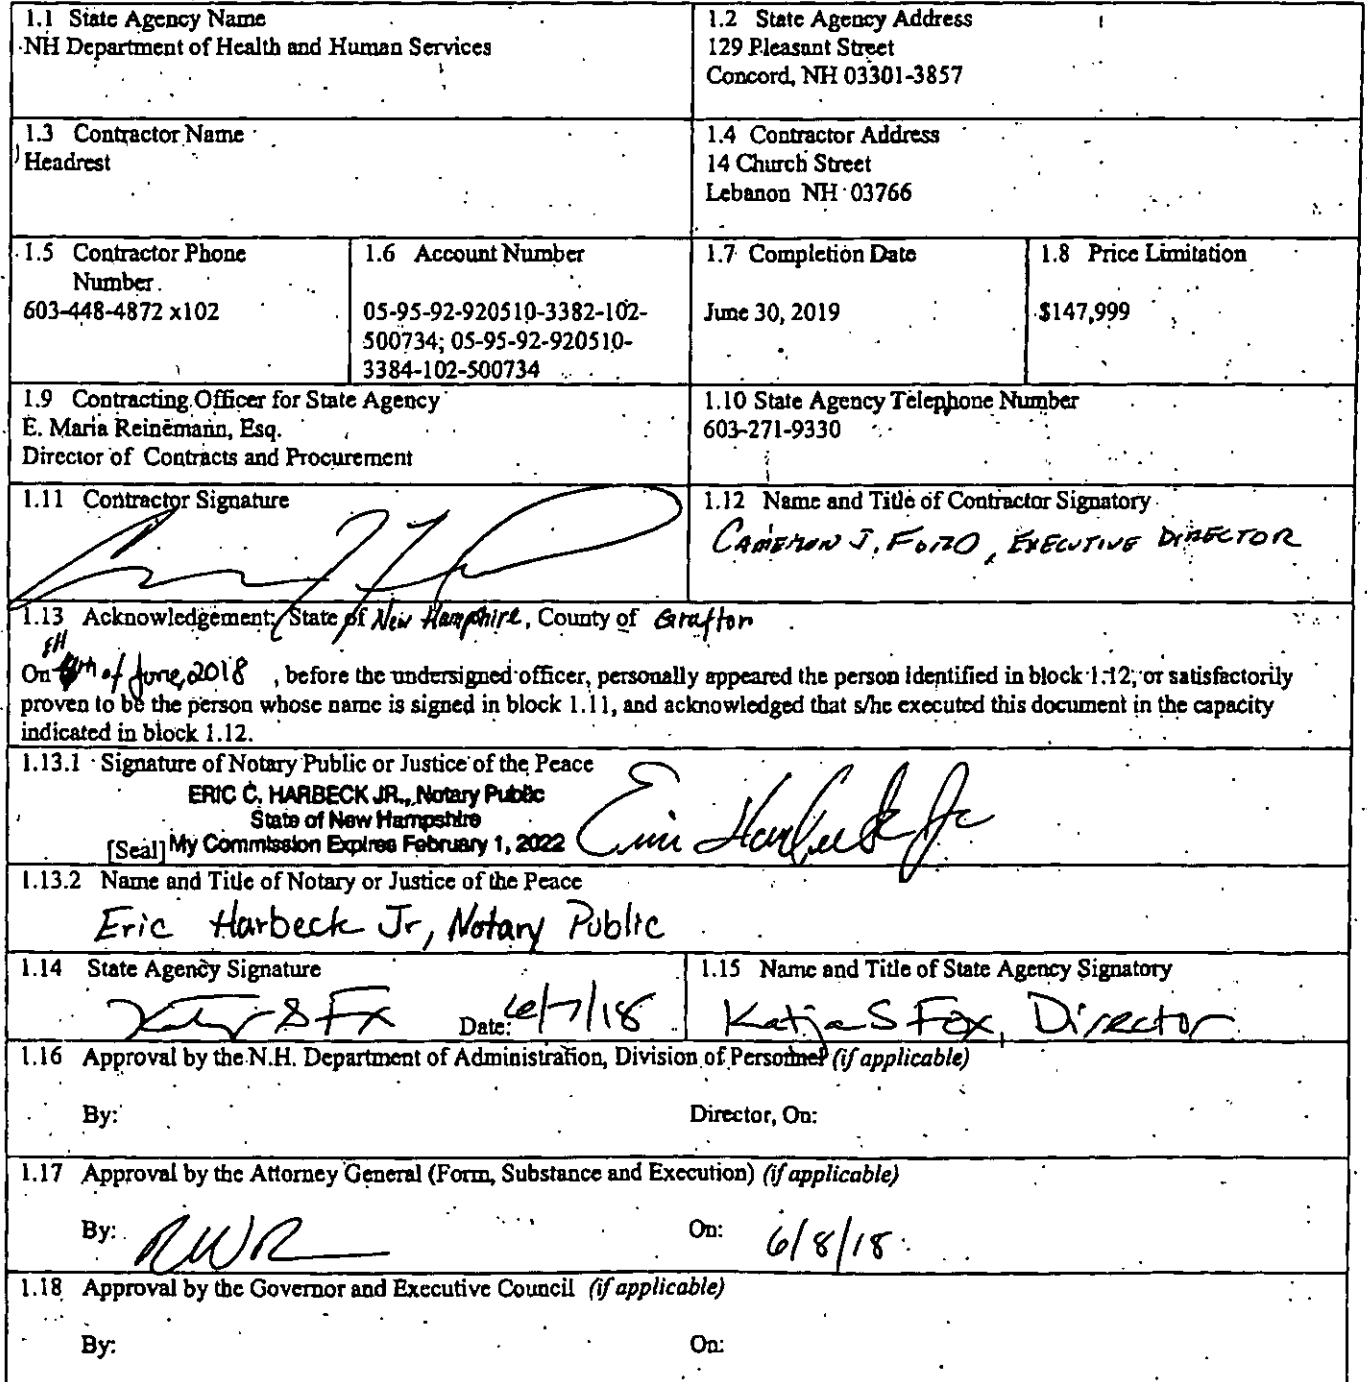 1.1 State Agency Name
NH Department of Health and Human Services
1.2 State Agency Address
129 Pleasant Street
Concord, NH 03301-3857
1.3 Contractor Name
Headrest
1.4 Contractor Address
14 Church Street
Lebanon NH 03766
1.5 Contractor Phone
Number
603-448-4872 x102
1.6 Account Number
05-95-92-920510-3382-102-
500734; 05-95-92-920510-
3384-102-500734
1.7 Completion Date
June 30, 2019
1.8 Price Limitation
$147,999
1.9 Contracting Officer for State Agency
E. Maria Reinemann, Esq.
Director of Contracts and Procurement
1.10 State Agency Telephone Number
603-271-9330
1.11 Contractor Signature
1.12 Name and Title of Contractor Signatory
CAMERON J. FORD, EXECUTIVE DIRECTOR
1.13 Acknowledgement: State of New Hampshire, County of Grafton
EH
On of June, 2018, before the undersigned officer, personally appeared the person identified in block 1.12, or satisfactorily
proven to be the person whose name is signed in block 1.11, and acknowledged that s/he executed this document in the capacity
indicated in block 1.12.
1.13.1 Signature of Notary Public or Justice of the Peace
ERIC C. HARBECK JR., Notary Public
State of New Hampshire
[Seal] My Commission Expires February 1, 2022
Eric Harbeck Jr
1.13.2 Name and Title of Notary or Justice of the Peace
Eric Harbeck Jr, Notary Public
1.14 State Agency Signature
Date: 6/7/18
1.15 Name and Title of State Agency Signatory
Katja S Fox, Director
1.16 Approval by the N.H. Department of Administration, Division of Personnel (if applicable)
By: Director, On:
1.17 Approval by the Attorney General (Form, Substance and Execution) (if applicable)
By: On: 6/8/18
1.18 Approval by the Governor and Executive Council (if applicable)
By: On: